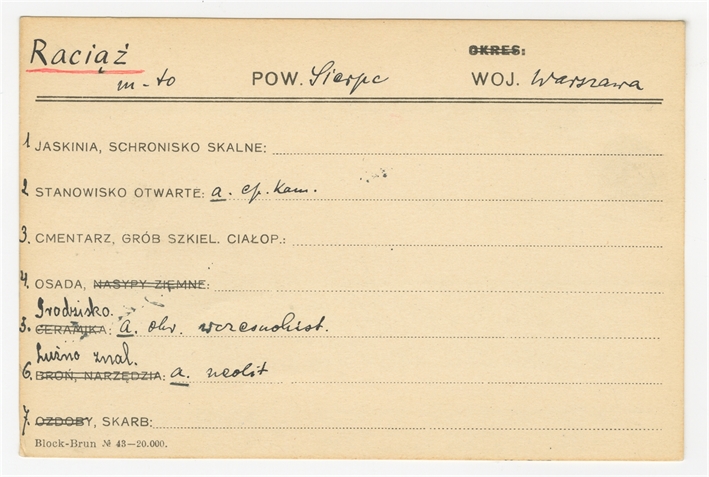 Raciąż OKRES:
m-to POW. Sierpc WOJ. Warszawa
1 JASKINIA, SCHRONISKO SKALNE:
2 STANOWISKO OTWARTE: a. ep. kam.
3. CMENTARZ, GRÓB SZKIEL. CIAŁOP.:
4. OSADA, NASYPY ZIEMNE:
Grodzisko.
5. CERAMIKA: a. okr. wczesnohist.
Luźno znal.
6. BROŃ, NARZĘDZIA: a. neolit
7. OZDOBY, SKARB:
Block-Brun № 43—20.000.